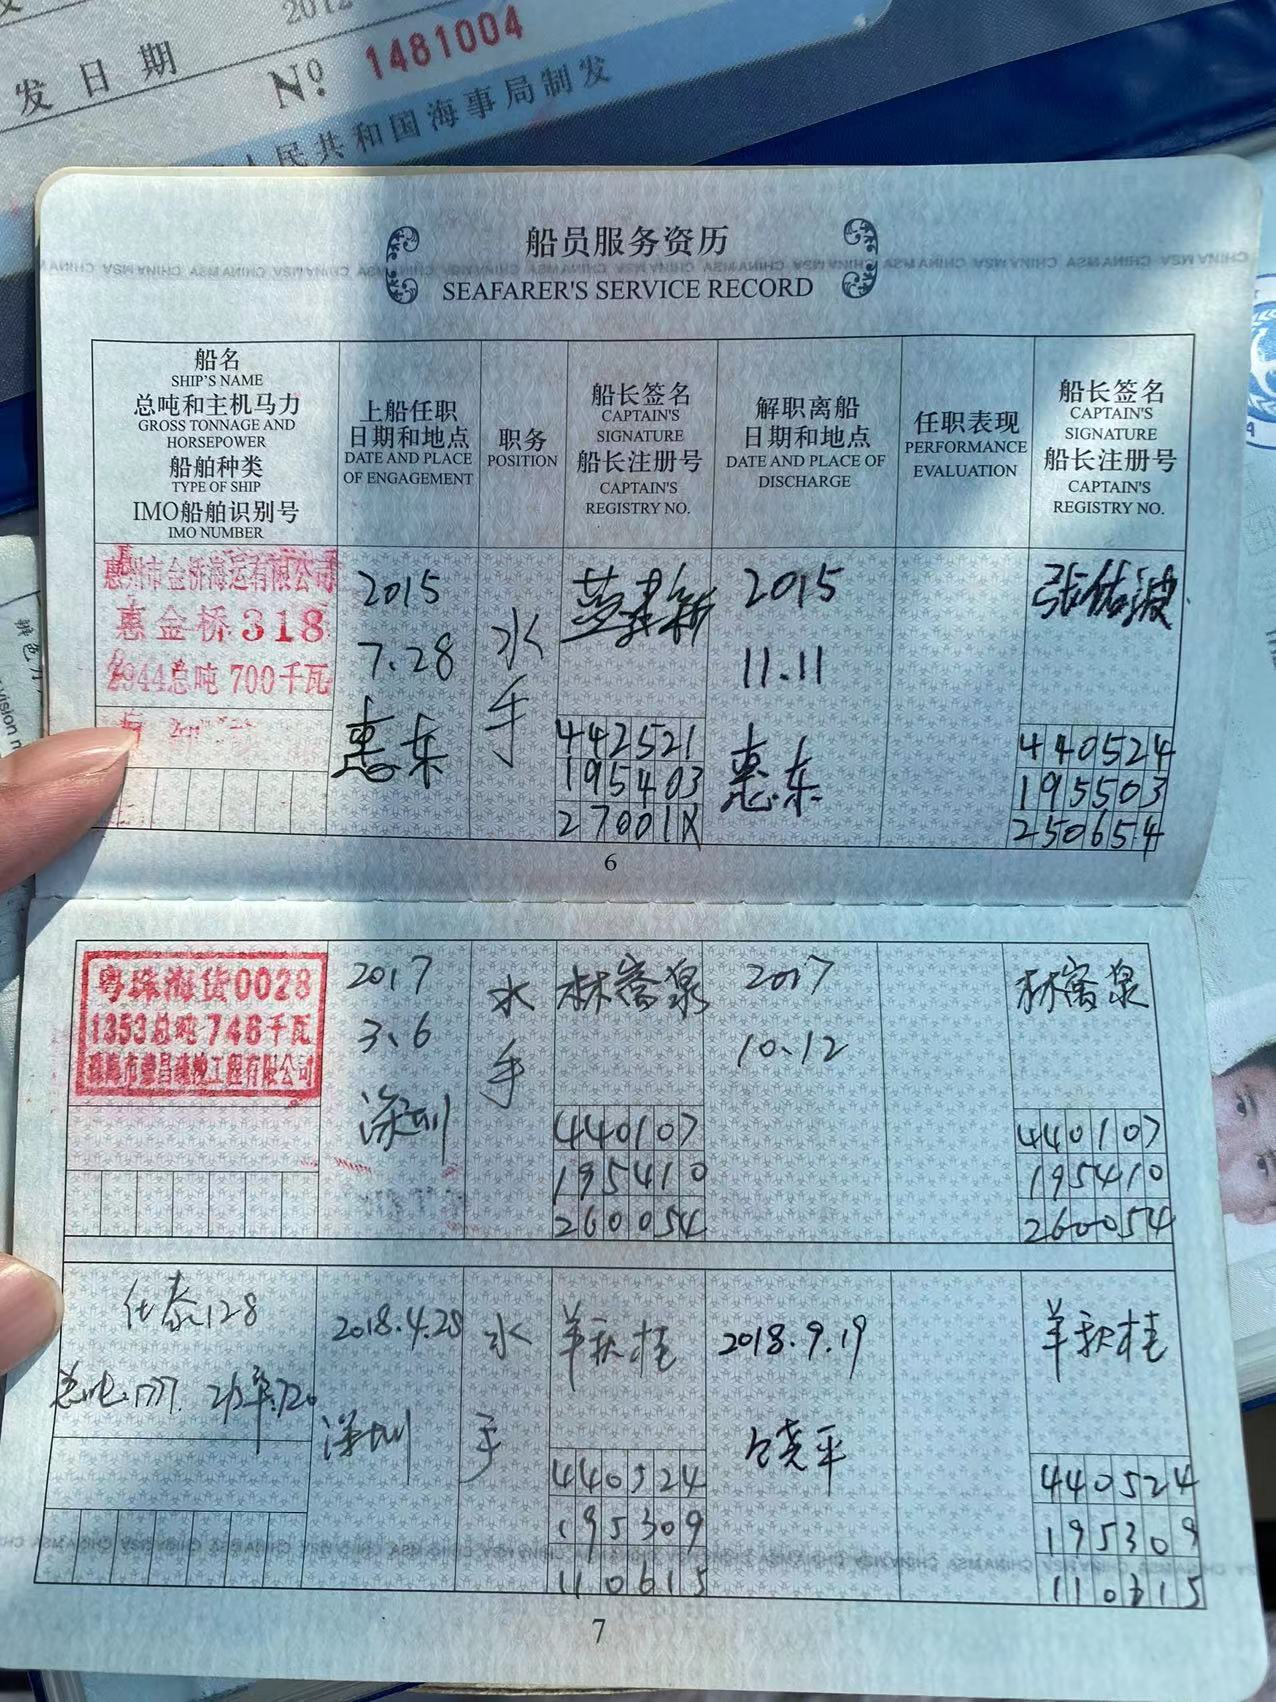 2012
发日期
№ 1481004
人民共和国海事局制发
船员服务资历
CHINA MSA CHINA MSA CHINA MSA CHINA MSA CHINA MSA
SEAFARER'S SERVICE RECORD
船名
SHIP'S NAME
总吨和主机马力
GROSS TONNAGE AND
HORSEPOWER
船舶种类
TYPE OF SHIP
IMO船舶识别号
IMO NUMBER
上船任职
日期和地点
DATE AND PLACE
OF ENGAGEMENT
职务
POSITION
船长签名
CAPTAIN'S
SIGNATURE
船长注册号
CAPTAIN'S
REGISTRY NO.
解职离船
日期和地点
DATE AND PLACE OF
DISCHARGE
任职表现
PERFORMANCE
EVALUATION
船长签名
CAPTAIN'S
SIGNATURE
船长注册号
CAPTAIN'S
REGISTRY NO.
惠州市金桥海运有限公司
惠金桥318
2944总吨 700千瓦
2015
7.28
惠东
水
手
442521
195403
27001X
2015
11.11
惠东
张佑波
440524
195503
250654
6
粤珠海货0028
1353总吨 746千瓦
2017
3.6
深圳
水
手
林富泉
440107
195410
260054
2017
10.12
林富泉
440107
195410
260054
128
2018.4.28
深圳
水
手
羊秋桂
440524
195309
110615
2018.9.19
饶平
羊秋桂
440524
195309
110615
CHINA MSA CHINA MSA CHINA MSA
7